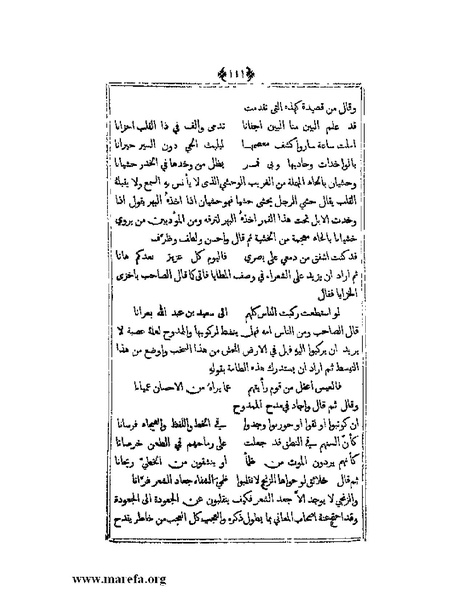 ﴿ ١٤١ ﴾
وقال من قصيدة كهذه التى تقدمت
قد علم البين منا البين اجفانا تدمى والف فى ذا القلب احزانا
املت ساعة ساروا كشف معصمها ليلبث الحى دون السير حيرانا
بالواخدات وحاديها وبى قمر يظل من وخدها فى الخدر حشيانا
وحشيان بالحاء المهملة من الغريب الوحشى الذى لا يأنس به السمع ولا يقبله
القلب يقال حشى الرجل يحشى حشيا فهو حشيان اذا اخذه البهر يقول اذا
وخدت الابل تحت هذا القمر اخذه البهر لترفه ومن المؤدبين من يروى
خشيانا بالخاء معجمة من الخشية ثم قال واحسن ولطف وظرف
قد كنت اشفق من دمعى على بصرى فاليوم كل عزيز بعدكم هانا
ثم اراد ان يزيد على الشعراء فى وصف المطايا فاتى كما قال الصاحب باخزى
الخزايا فقال
لو استطعت ركبت الناس كلهم الى سعيد بن عبد الله بعرانا
قال الصاحب ومن الناس امه فهل ينشط لركوبها والممدوح لعله عصبة لا
يريد ان يركبوا اليه فهل فى الارض افحش من هذا السخف واوضع من هذا
التبسط ثم اراد ان يستدرك هذه الطامة بقوله
فالعيس اعقل من قوم رأيتهم عما يراه من الاحسان عميانا
وقال ثم قال واجاد فى مدح الممدوح
ان كوتبوا او لقوا او حوربوا وجدوا فى الخط واللفظ والهيجاء فرسانا
كأن السنهم فى النطق قد جعلت على رماحهم فى الطعن خرصانا
كأنهم يردون الموت من ظمأ او ينشقون من الخطى ريحانا
ثم قال خلائق لو حواها الزنج لانقلبوا ظمى الشفاه جعاد الشعر غرانا
والزنجى لا يوجد الا جعد الشعر فكيف ينقلبون عن الجعودة الى الجعودة
وقد احتج عنه اصحاب المعانى بما يطول ذكره والعجب كل العجب من خاطر يقدح
www.marefa.org